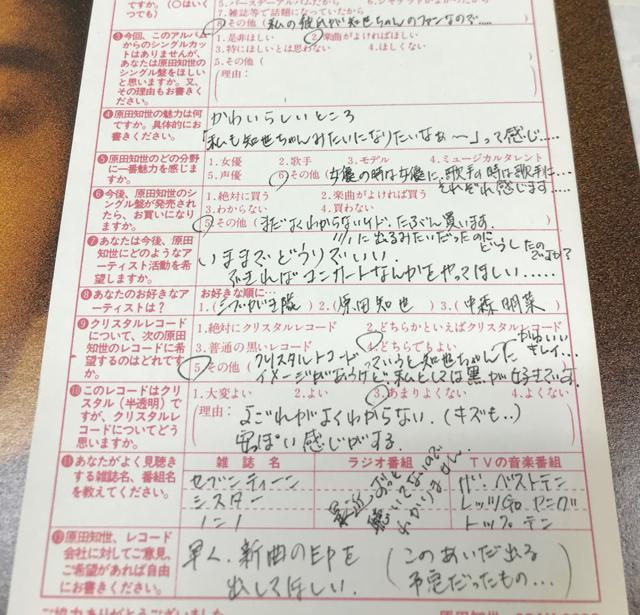 ですか。(○はいく
つでも)
5.バースデーアルバムだから
7.雑誌等で話題になっていたから
8.その他(私の彼れが知世ちゃんのファンなので.....
③今回、このアルバム
からのシングルカット
はありませんが、
あなたは原田知世の
シングル盤をほしい
と思いますか。又、
その理由もお書きく
ださい。
1.是非ほしい 2.楽曲がよければほしい
3.特にほしいとは思わない 4.ほしくない
5.その他(
(理由:
④原田知世の魅力は何
ですか。具体的にお
書きください。
かわいらしいところ
「私も知世ちゃんみたいになりたいなぁ〜」って感じ.....
⑤原田知世のどの分野
に一番魅力を感じま
すか。
1.女優 2.歌手 3.モデル 4.ミュージカルタレント
5.声優 6.その他(女優の時は女優に、歌手の時は歌手に...
それぞれ感じます....
⑥今後、原田知世のシ
ングル盤が発売され
たら、お買いになり
ますか。
1.絶対に買う 2.楽曲がよければ買う
3.わからない 4.買わない
5.その他(まだよくわからないけど、たぶん買います.
⑦あなたは今後、原田
知世にどのような
アーティスト活動を希
望しますか。
に出るみたいだったのに
どうしたの
ですか?
いままでどうりでいい.
できればコンサートなんかをやってほしい......
⑧あなたのお好きなア
ーティストは?
お好きな順に...
1.(シブがき隊)2.(原田知世)3.(中森明菜)
⑨クリスタルレコード
について、次の原田
知世のレコードに希
望するのはどれです
か。
1.絶対にクリスタルレコード 2.どちらかといえばクリスタルレコード
3.普通の黒いレコード 4.どちらでもよい
かわいい
キレイ...
5.その他(クリスタルレコードっていうと知世ちゃんに
イメージがあうけど私としては黒が好きです。
⑩このレコードはクリ
スタル(半透明)で
すが、クリスタルレ
コードについてどう
思いますか。
1.大変よい 2.よい 3.あまりよくない 4.よくない
(理由:よごれがよくわからない.(キズも..)
安っぽい感じがする.
⑪あなたがよく見聴き
する雑誌名、番組名
を教えてください。
雑誌名 ラジオ番組 TVの音楽番組
セブンティーン
シスター
ノンノ
最近
聴いてないので
わかりません.
ザ・ベストテン
レッツGoヤング
トップテン
⑫原田知世、レコード
会社に対してご意見、
ご希望があれば自由
にお書きください。
早く、新曲のEPを
出してほしい.
(このあいだ出る
予定だったもの...)
ご協力ありがとうございました